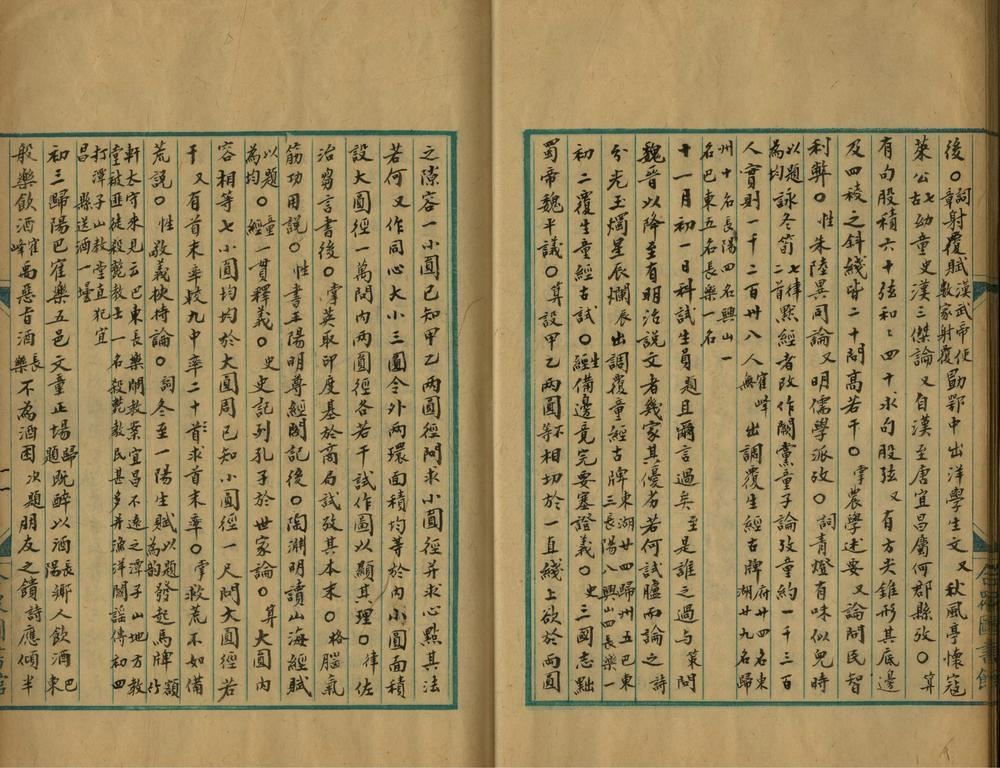 後〇詞章射覆賦漢武帝使數家射覆勗鄂中出洋學生文又秋風亭懷寇
萊公七古幼童史漢三傑論又自漢至唐宜昌屬何郡縣攷〇算
有句股積六十弦和和四十求句股弦又有方尖錐形其底邊
及四稜之斜綫皆二十問高若干〇掌農學述要又論問民智
利弊〇性朱陸異同論又明儒學派攷〇詞青燈有味似兒時
以題為均詠冬筍七律二首點經者改作闕黨童子論攷童約一千三百
人實則一千二百卅八人崔峰出調覆生經古牌府廿四名東湖廿九名歸
州十名長陽四名興山一名巴東五名長樂一名
十一月初一日科試生員題且爾言過矣至是誰之過與策問
魏晉以降至有明治説文者幾家其優劣若何試臚而論之詩
分光玉燭星辰爛辰出調覆童經古牌東湖廿四歸州五巴東三長陽八興山四長樂一
初二覆生童經古試〇生經備邊竟完要塞證義〇史三國志黜
蜀帝魏平議〇算設甲乙兩圓不等相切於一直綫上欲於兩圓
之隙容一小圓已知甲乙兩圓徑問求小圓徑并求心點其法
若何又作同心大小三圓令外兩環面積均等於內小圓面積
設大圓徑一萬問內兩圓徑各若干試作圖以顯其理〇律佐
治芻言書後〇掌英取印度基於商局試攷其本末〇格腦氣
筋功用說〇性書王陽明尊經閣記後〇陶淵明讀山海經賦
以題為均〇童經一貫釋義〇史史記列孔子於世家論〇算大圓內
容相等七小圓均切於大圓周已知小圓徑一尺問大圓徑若
干又有首末率較九中率二十求首末率〇掌救荒不如備
荒説〇性敬義挾持論〇詞冬至一陽生賦以題為韵發起馬牌
軒太守來見云巴東長樂鬧教案宜昌不遠之潭子山地方教
堂被匪徒殺斃教士一名殺斃教民甚多并漁洋關謠傳初四
打潭子山教堂直犯宜昌縣送酒一壜
初三歸陽巴崔樂五邑文童正場歸題既醉以酒長陽鄉人飲酒巴東
般樂飲酒崔峰禹惡旨酒長樂不為酒困次題朋友之饋詩應傾半